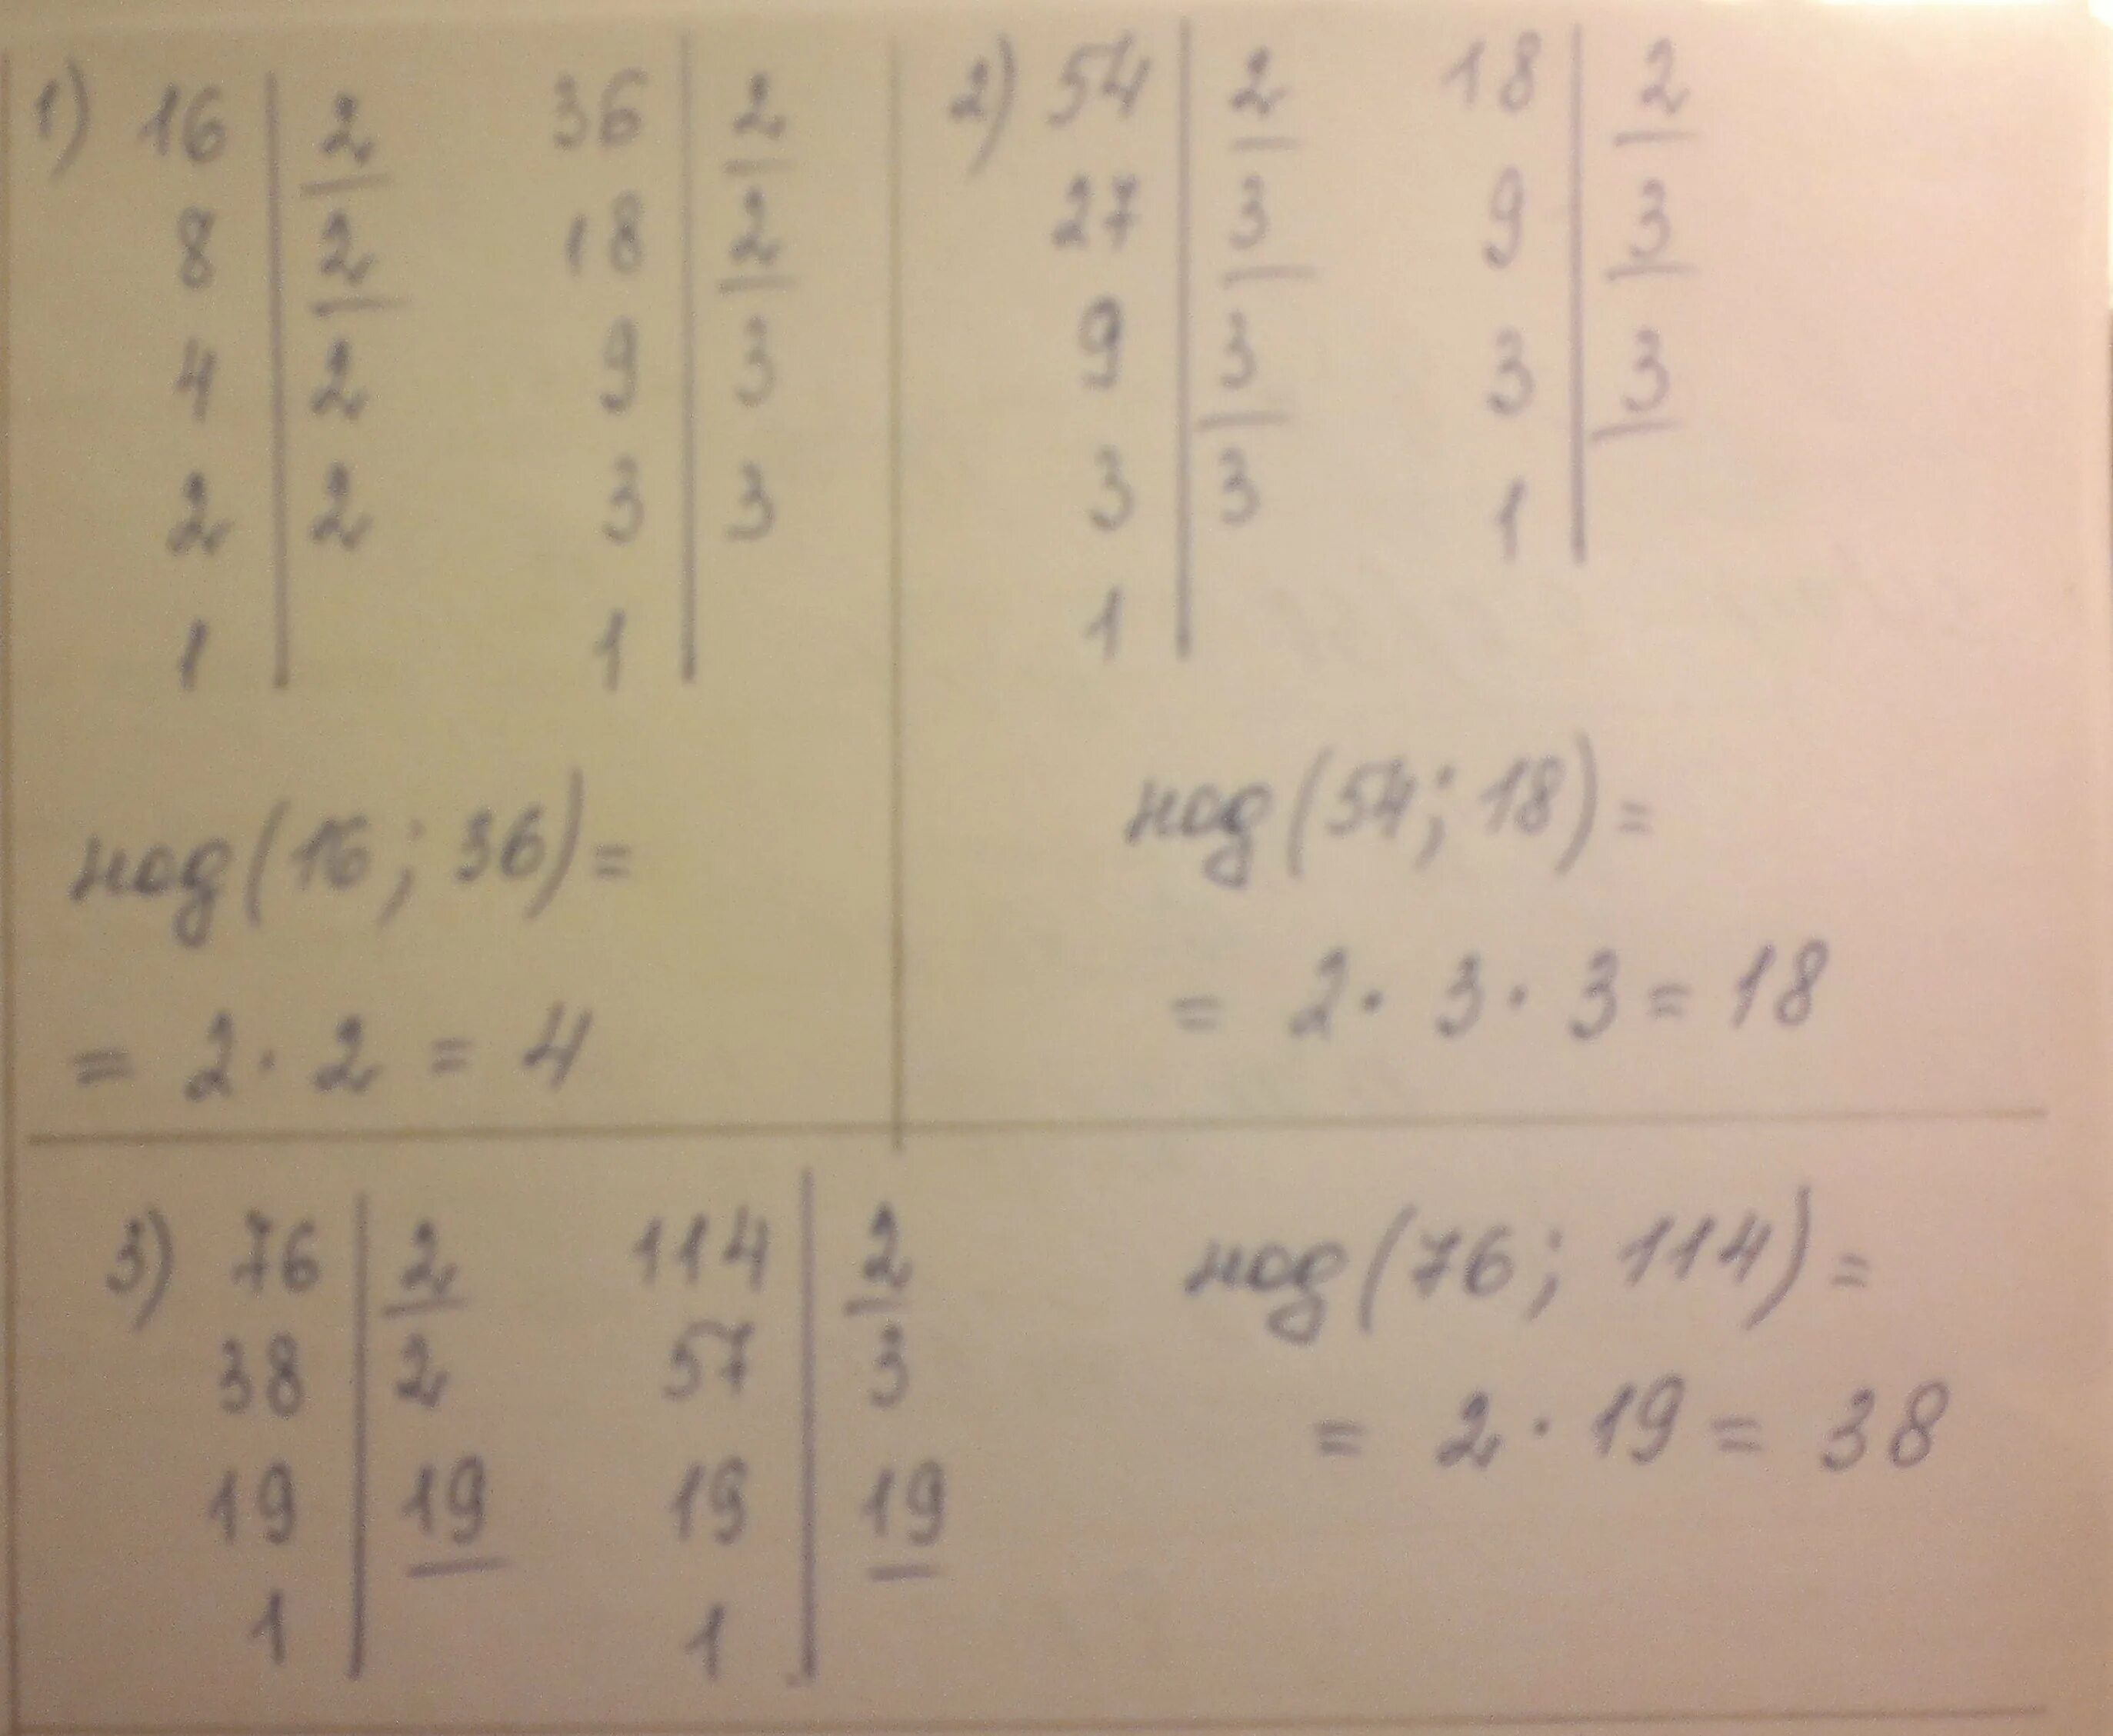 1) 16 | 2   36 | 2
8 | 2   18 | 2
4 | 2   9 | 3
2 | 2   3 | 3
1 |   1 |
нод (16; 36) =
= 2 · 2 = 4
2) 54 | 2   18 | 2
27 | 3   9 | 3
9 | 3   3 | 3
3 | 3   1 |
1 |
нод (54; 18) =
= 2 · 3 · 3 = 18
3) 76 | 2   114 | 2
38 | 2   57 | 3
19 | 19   19 | 19
1 |   1 |
нод (76; 114) =
= 2 · 19 = 38